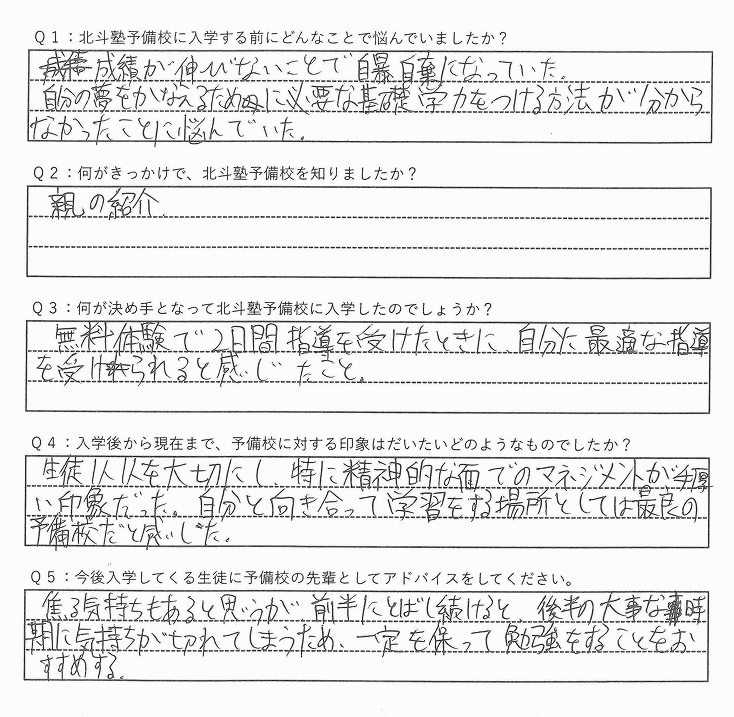 Q1：北斗塾予備校に入学する前にどんなことで悩んでいましたか？
成績が伸びないことで自暴自棄になっていた。
自分の夢をかなえるために必要な基礎学力をつける方法が分から
なかったことに悩んでいた。
Q2：何がきっかけで、北斗塾予備校を知りましたか？
親の紹介
Q3：何が決め手となって北斗塾予備校に入学したのでしょうか？
無料体験で2日間指導を受けたときに、自分に最適な指導
を受けられると感じたこと。
Q4：入学後から現在まで、予備校に対する印象はだいたいどのようなものでしたか？
生徒1人1人を大切にし、特に精神的な面でのマネジメントが手厚
い印象だった。自分と向き合って学習をする場所としては最良の
予備校だと感じた。
Q5：今後入学してくる生徒に予備校の先輩としてアドバイスをしてください。
焦る気持ちもあると思うが前半にとばし続けると、後半の大事な時
期に気持ちが切れてしまうため、一定を保って勉強をすることをお
すすめする。